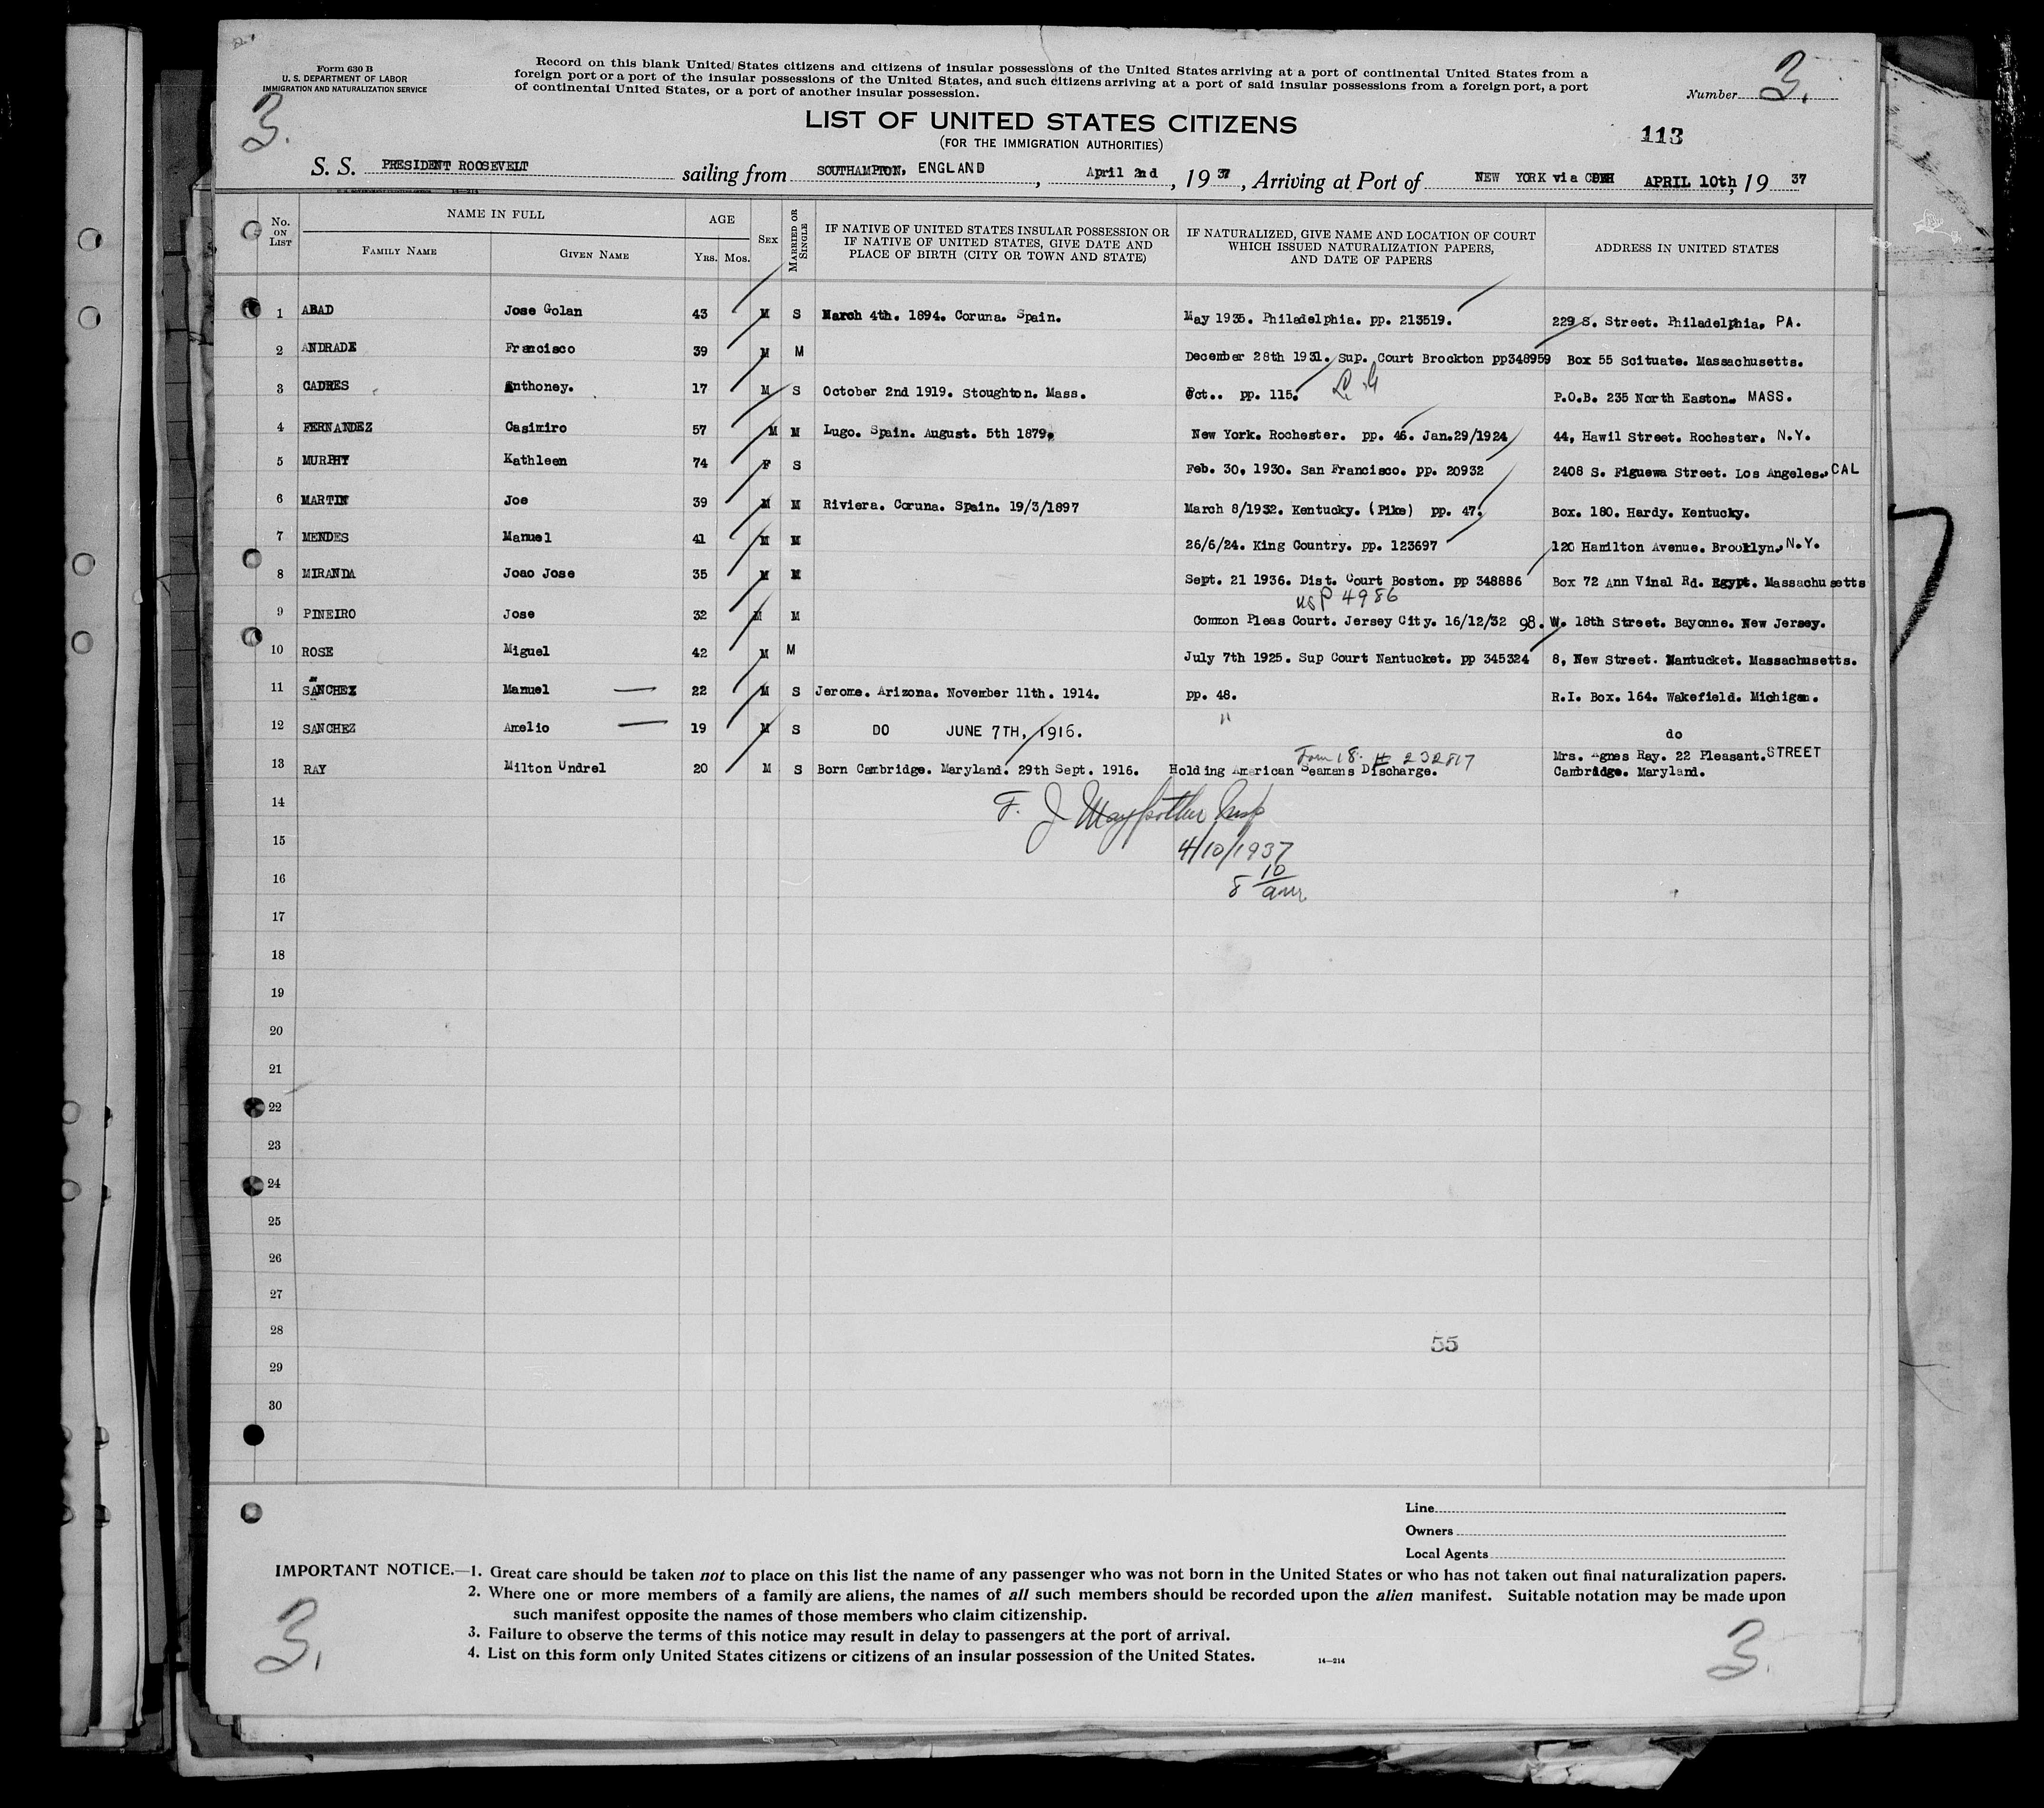 Form 630 B
U. S. DEPARTMENT OF LABOR
IMMIGRATION AND NATURALIZATION SERVICE
Record on this blank United States citizens and citizens of insular possessions of the United States arriving at a port of continental United States from a
foreign port or a port of the insular possessions of the United States, and such citizens arriving at a port of said insular possessions from a foreign port, a port
of continental United States, or a port of another insular possession.
Number 3.
3.
LIST OF UNITED STATES CITIZENS
(FOR THE IMMIGRATION AUTHORITIES)
113
S. S. PRESIDENT ROOSEVELT sailing from SOUTHAMPTON, ENGLAND, April 2nd, 1937, Arriving at Port of NEW YORK via APRIL 10th, 1937
No. ON LIST NAME IN FULL FAMILY NAME GIVEN NAME AGE YRS. MOS. SEX MARRIED OR SINGLE IF NATIVE OF UNITED STATES INSULAR POSSESSION OR IF NATIVE OF UNITED STATES, GIVE DATE AND PLACE OF BIRTH (CITY OR TOWN AND STATE) IF NATURALIZED, GIVE NAME AND LOCATION OF COURT WHICH ISSUED NATURALIZATION PAPERS, AND DATE OF PAPERS ADDRESS IN UNITED STATES
1 ABAD Jose Golan 43 M S March 4th. 1894. Coruna. Spain. May 1935. Philadelphia. pp. 213519. 229 S. Street. Philadelphia, PA.
2 ANDRADE Francisco 39 M M December 28th 1931. Sup. Court Brockton pp348959 Box 55 Scituate. Massachusetts.
3 CADRES Anthoney. 17 M S October 2nd 1919. Stoughton. Mass. Oct.. pp. 115. P.O.B. 235 North Easton. MASS.
4 FERNANDEZ Casimiro 57 M M Lugo. Spain. August. 5th 1879. New York. Rochester. pp. 46. Jan.29/1924 44, Hawil Street. Rochester, N.Y.
5 MURPHY Kathleen 74 F S Feb. 30, 1930. San Francisco. pp. 20932 2408 S. Figuewa Street. Los Angeles., CAL
6 MARTIN Joe 39 M M Riviera. Coruna. Spain. 19/3/1897 March 8/1932. Kentucky. (Pike) pp. 47. Box. 180. Hardy. Kentucky.
7 MENDES Manuel 41 M M 26/6/24. King Country. pp. 123697 120 Hamilton Avenue. Brooklyn, N.Y.
8 MIRANDA Joao Jose 35 M M Sept. 21 1936. Dist. Court Boston. pp 348886 Box 72 Ann Vinal Rd. Egypt. Massachusetts
USP 4986
9 PINEIRO Jose 32 M M Common Pleas Court. Jersey City. 16/12/32 98. W. 18th Street. Bayonne. New Jersey.
10 ROSE Miguel 42 M M July 7th 1925. Sup Court Nantucket. pp 345324 8, New Street. Nantucket. Massachusetts.
11 SANCHEZ Manuel 22 M S Jerome. Arizona. November 11th. 1914. pp. 48. R.I. Box. 164. Wakefield. Michigan.
12 SANCHEZ Amelio 19 M S DO JUNE 7TH, 1916. " do
Form 18. # 232817
13 RAY Milton Undrel 20 M S Born Cambridge. Maryland. 29th Sept. 1916. Holding American Seamans Discharge. Mrs. Agnes Ray. 22 Pleasant. STREET
Cambridge. Maryland.
14
F. J
15
4/10/1937
16
8 10/am
17
18
19
20
21
22
23
24
25
26
27
28
55
29
30
Line
Owners
Local Agents
IMPORTANT NOTICE.—1. Great care should be taken not to place on this list the name of any passenger who was not born in the United States or who has not taken out final naturalization papers.
2. Where one or more members of a family are aliens, the names of all such members should be recorded upon the alien manifest. Suitable notation may be made upon
such manifest opposite the names of those members who claim citizenship.
3. Failure to observe the terms of this notice may result in delay to passengers at the port of arrival.
4. List on this form only United States citizens or citizens of an insular possession of the United States.
14—214
3.
3.